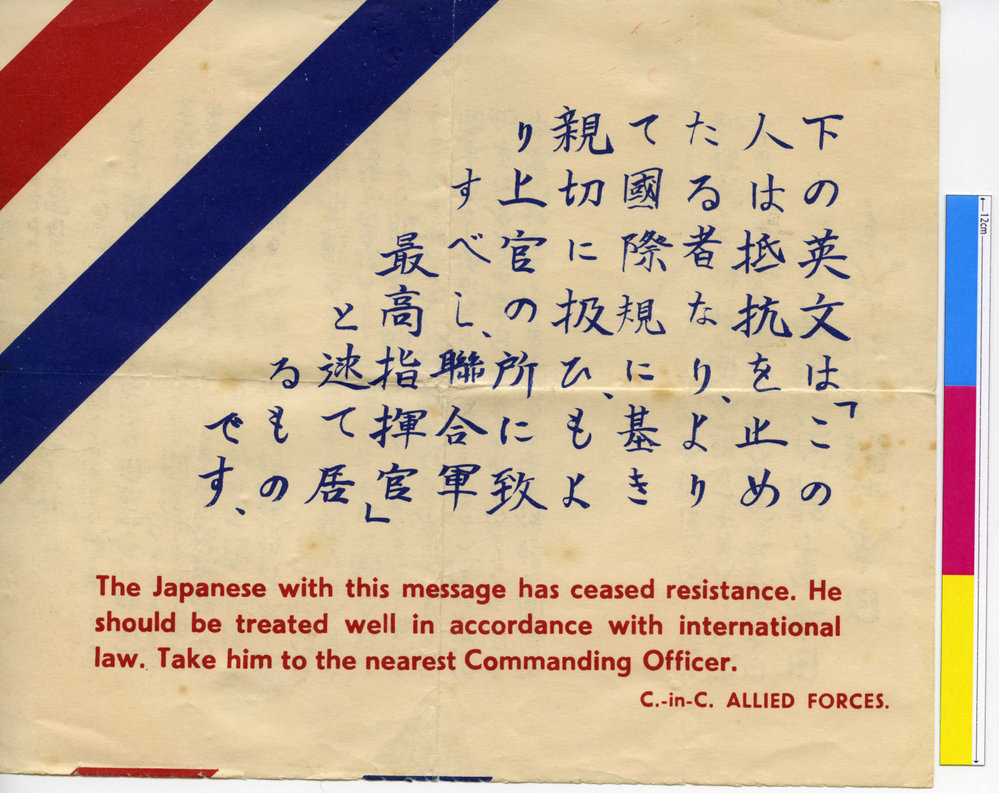 下の英文は「この
人は抵抗を止め
たる者なり、より
て國際規に基き
親切に扱ひ、もよ
り上官の所に致
すべし、聯合軍
最高指揮官」
と逑て居
るもの
です、
The Japanese with this message has ceased resistance. He
should be treated well in accordance with international
law. Take him to the nearest Commanding Officer.
C.-in-C. ALLIED FORCES.
12cm